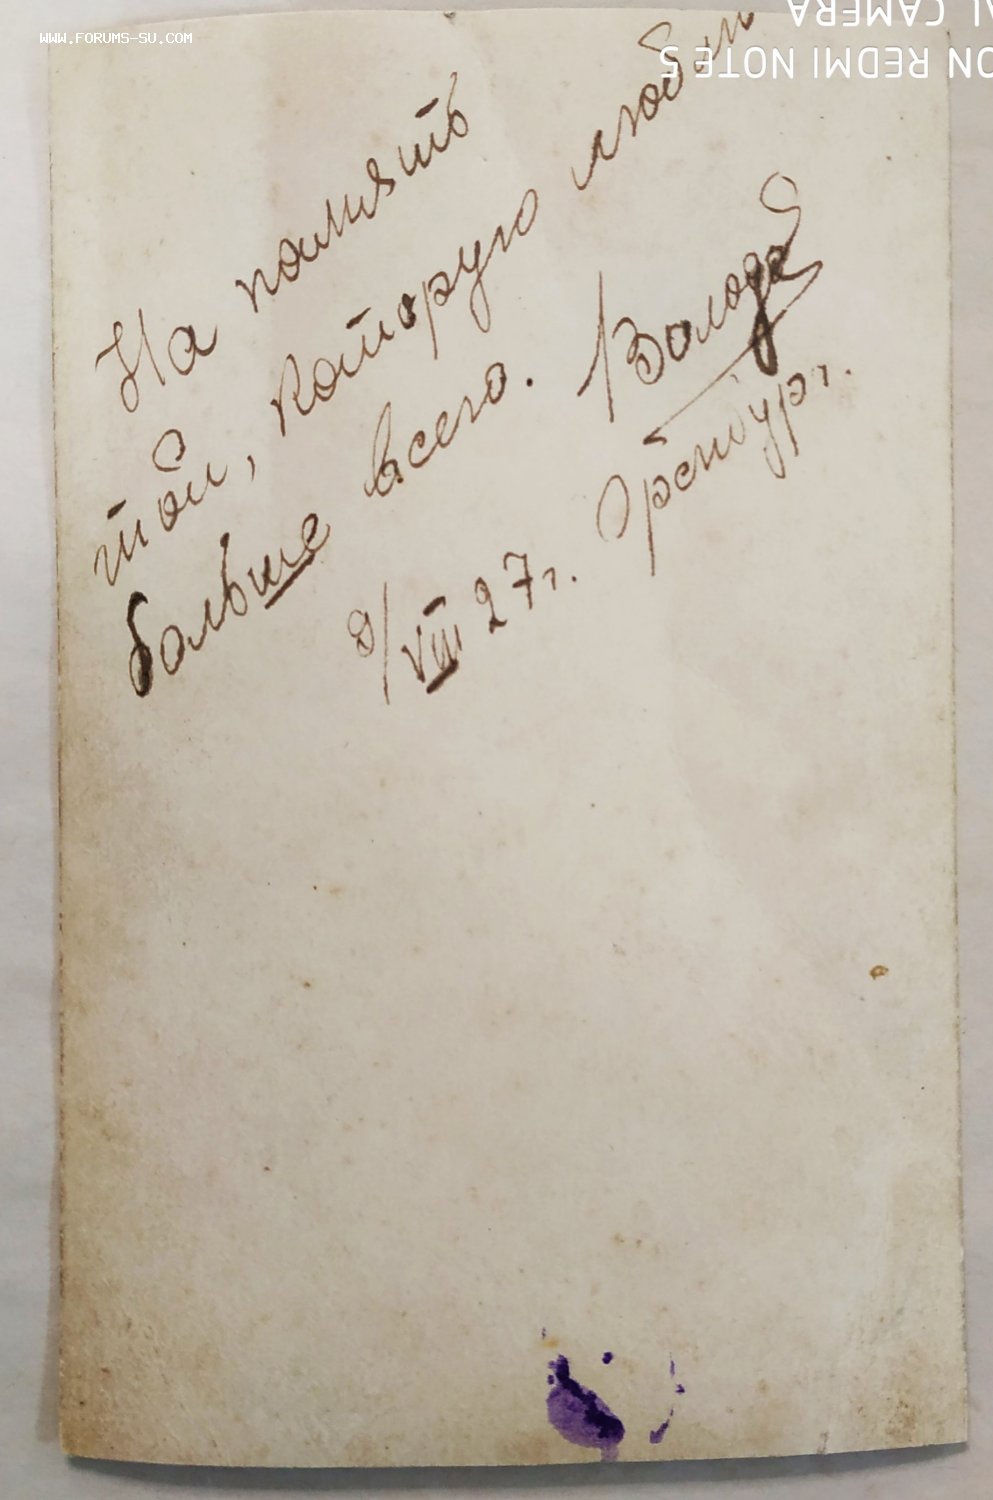 WWW.FORUMS-SU.COM
ON REDMI NOTE 5
AL CAMERA
На память
той, которую любил
больше всего. Володя
9/VIII 27г. Оренбург.